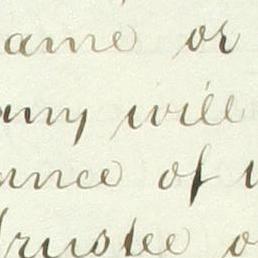 ame or
any will
ance of
Trustee o